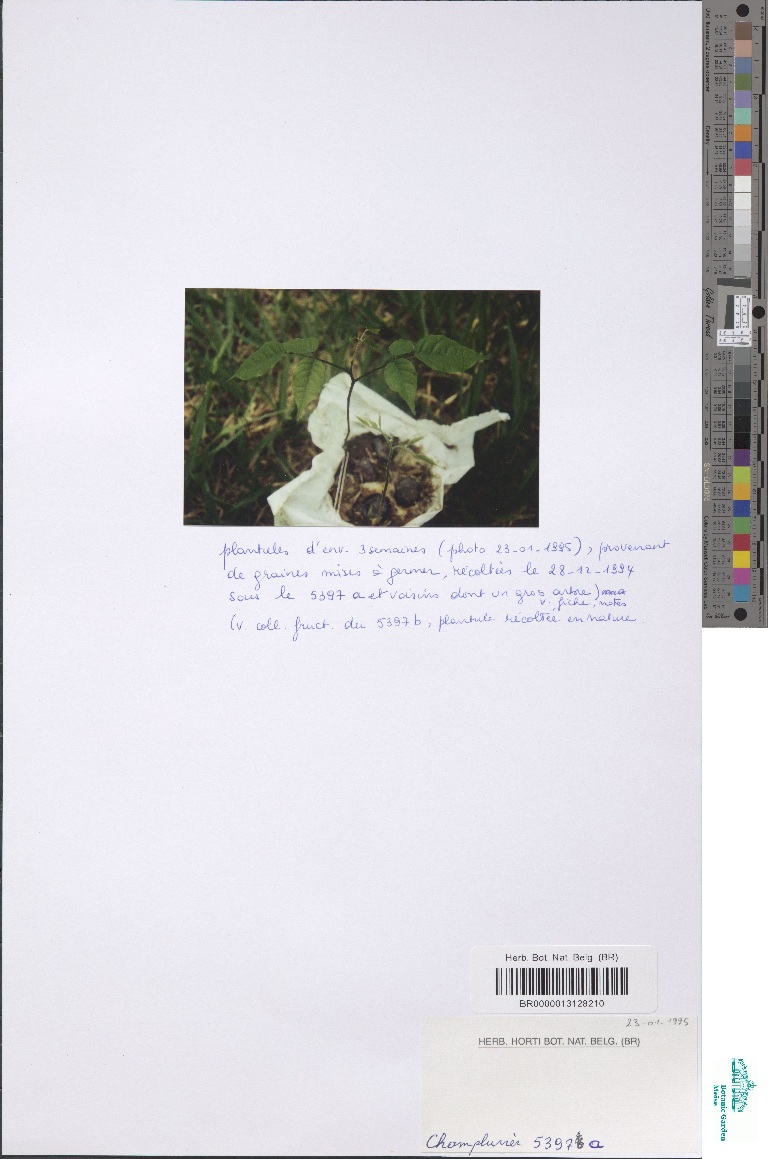 plantules d'env. 3 semaines (photo 23-01-1995), provenant
de graines mises à germer, récoltées le 28-12-1994
sous le 5397 a et voisins dont un gros arbre)
v. fiche, notes
(v. coll. fruct. du 5397 b, plantule récoltée en nature.
Herb. Bot. Nat. Belg. (BR)
BR0000013128210
23-01-1995
HERB. HORTI BOT. NAT. BELG. (BR)
Champluvier 5397 a
Botanic Garden
Meise